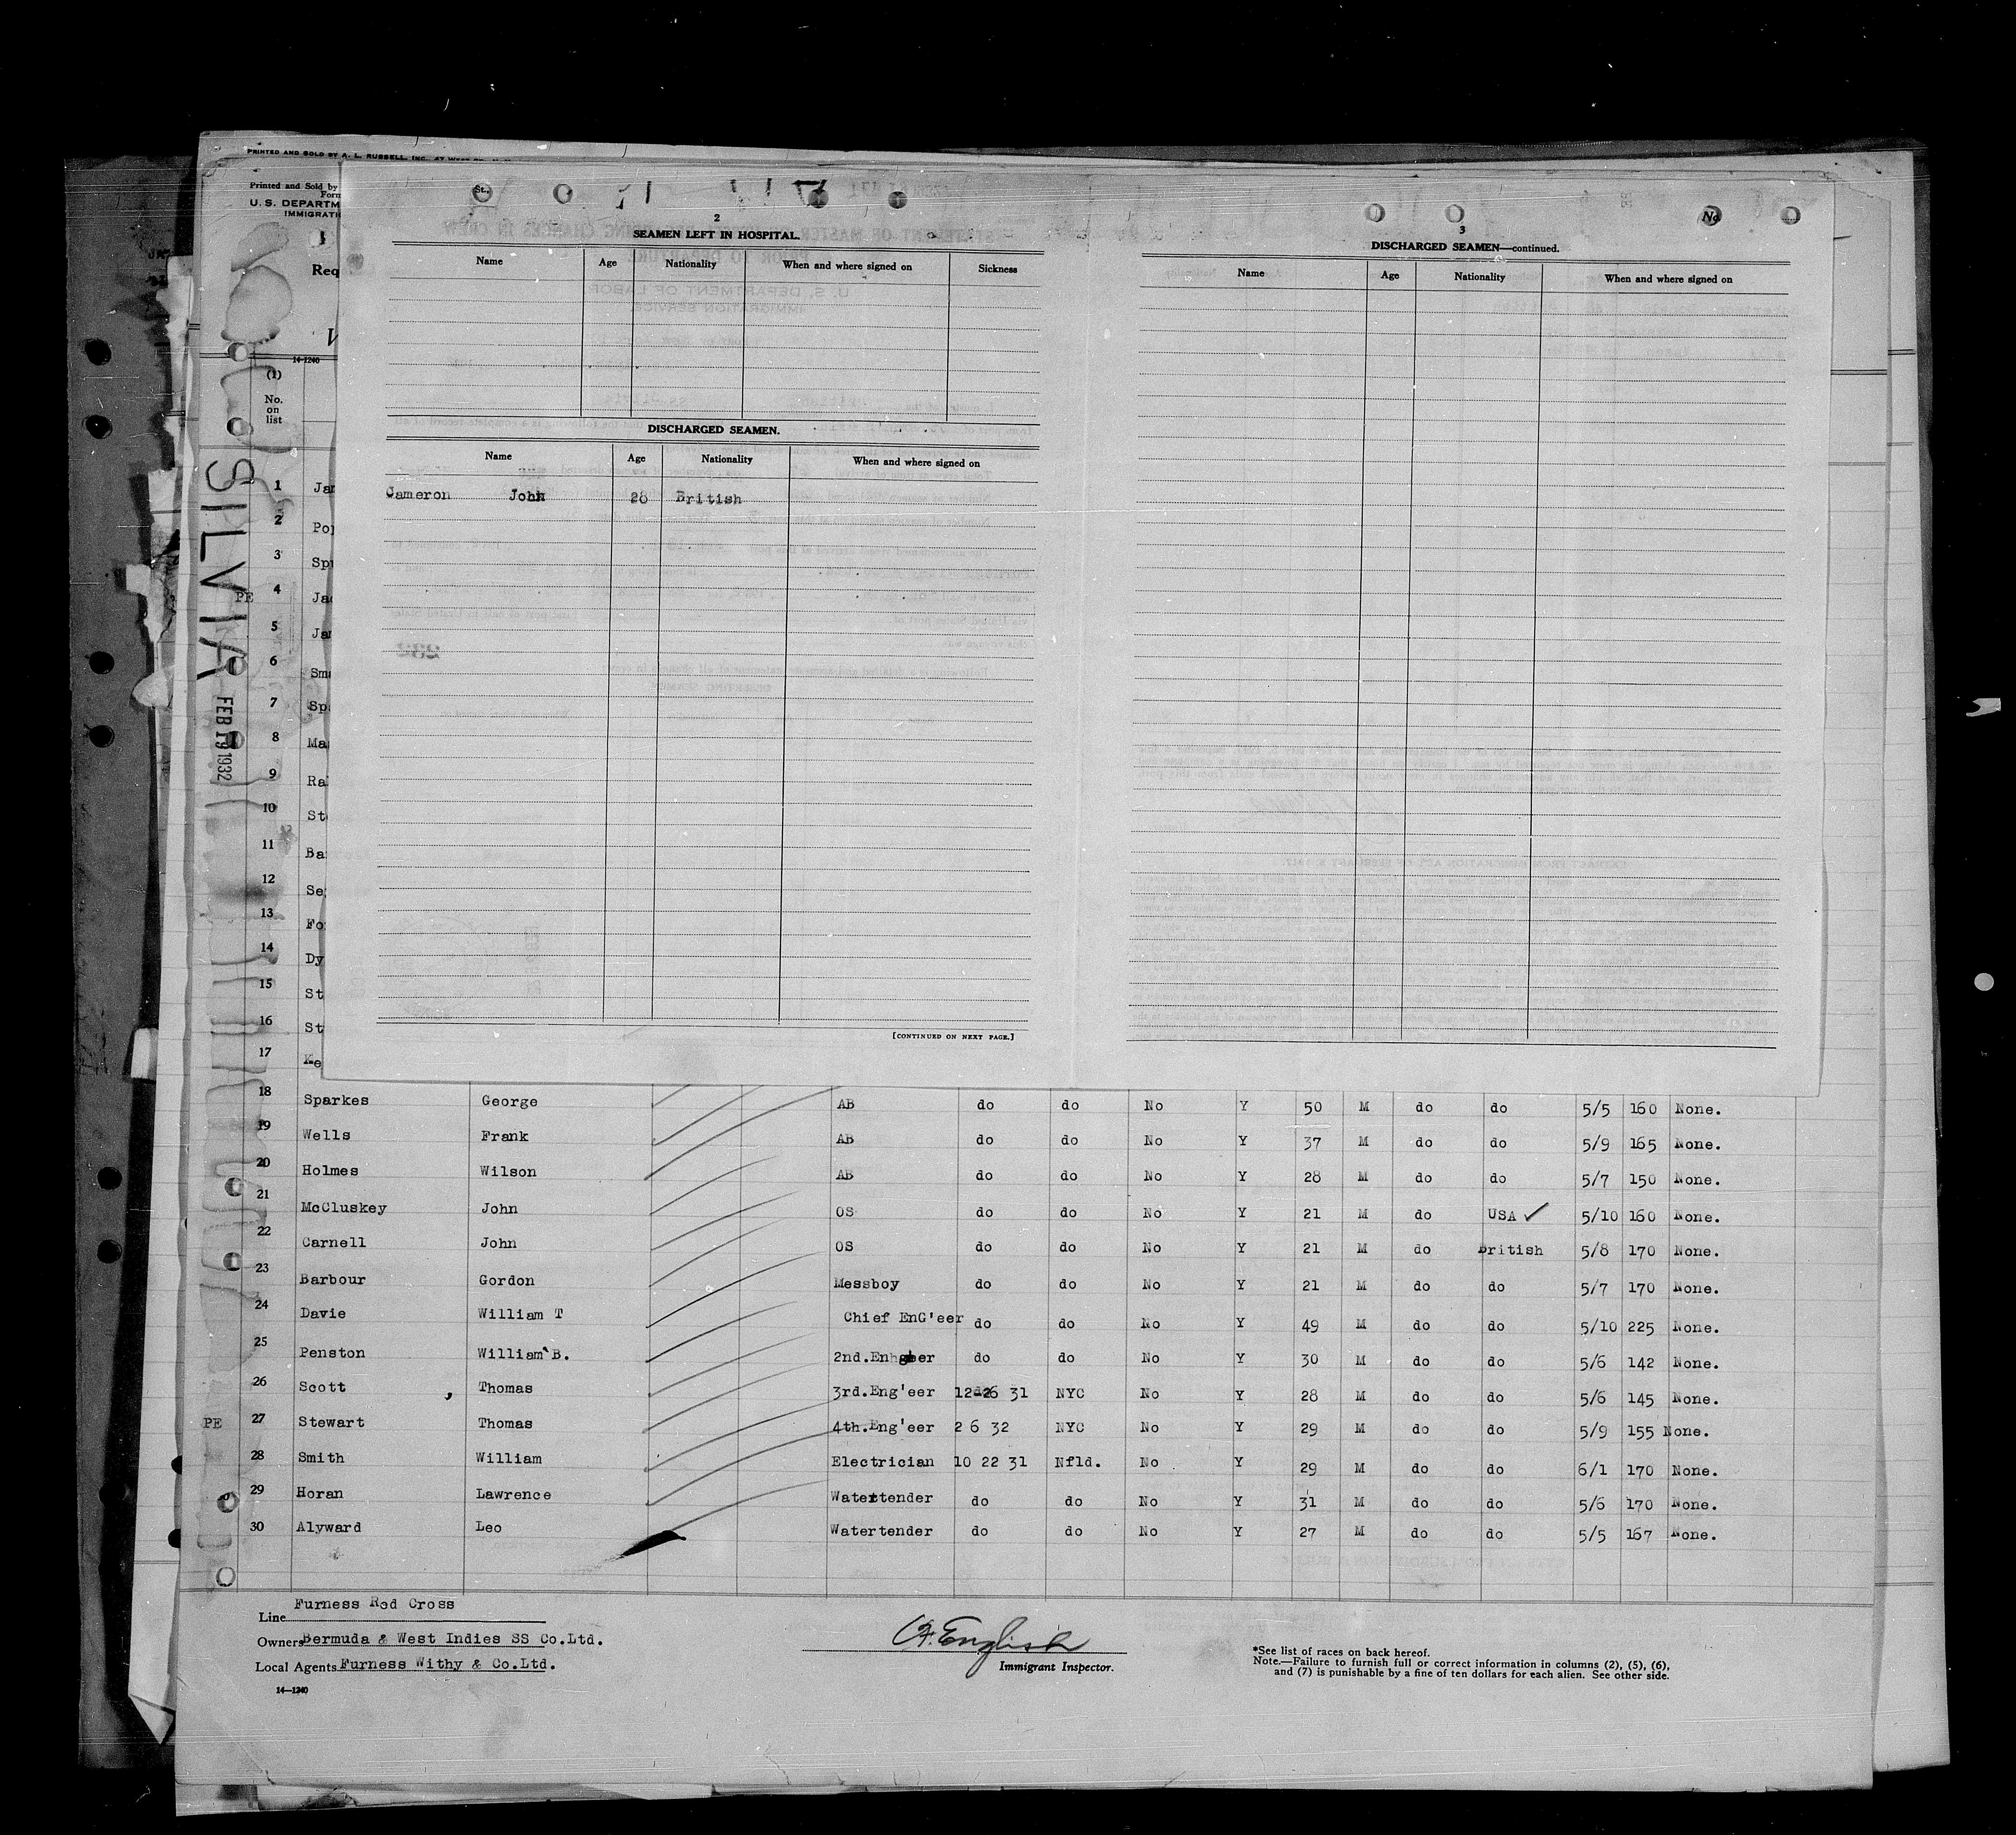 PRINTED AND SOLD BY A. L. RUSSELL, INC.
Printed and Sold by
Form
U. S. DEPARTM
IMMIGRATIO
Req
14-1240
(1)
No.
on
list
SILVIA
FEB 19 1932
St.,
2
SEAMEN LEFT IN HOSPITAL.
Name Age Nationality When and where signed on Sickness
DISCHARGED SEAMEN.
Name Age Nationality When and where signed on
Cameron John 28 British
[CONTINUED ON NEXT PAGE.]
No
3
DISCHARGED SEAMEN—continued.
Name Age Nationality When and where signed on
1 Jan
2 Pop
3 Spr
4 Jac
PE
5 Jan
6 Sma
7 Spa
8 Ma
9 Ra
10 St
11 Ba
12 Se
13 Fo
14 Dy
15 St
16 St
17 Ke
18 Sparkes George AB do do No Y 50 M do do 5/5 160 None.
19 Wells Frank AB do do No Y 37 M do do 5/9 165 None.
20 Holmes Wilson AB do do No Y 28 M do do 5/7 150 None.
21 McCluskey John OS do do No Y 21 M do USA ✓ 5/10 160 None.
22 Carnell John OS do do No Y 21 M do British 5/8 170 None.
23 Barbour Gordon Messboy do do No Y 21 M do do 5/7 170 None.
24 Davie William T Chief EnG'eer do do No Y 49 M do do 5/10 225 None.
25 Penston William B. 2nd. do do No Y 30 M do do 5/6 142 None.
26 Scott , Thomas 3rd.Eng'eer 12 26 31 NYC No Y 28 M do do 5/6 145 None.
PE 27 Stewart Thomas 4th.Eng'eer 2 6 32 NYC No Y 29 M do do 5/9 155 None.
28 Smith William Electrician 10 22 31 Nfld. No Y 29 M do do 6/1 170 None.
29 Horan Lawrence Watertender do do No Y 31 M do do 5/6 170 None.
30 Alyward Leo Watertender do do No Y 27 M do do 5/5 167 None.
Line Furness Red Cross
Owners Bermuda & West Indies SS Co.Ltd.
Local Agents Furness Withy & Co.Ltd.
14—1240
English
Immigrant Inspector.
*See list of races on back hereof.
Note.—Failure to furnish full or correct information in columns (2), (5), (6),
and (7) is punishable by a fine of ten dollars for each alien. See other side.